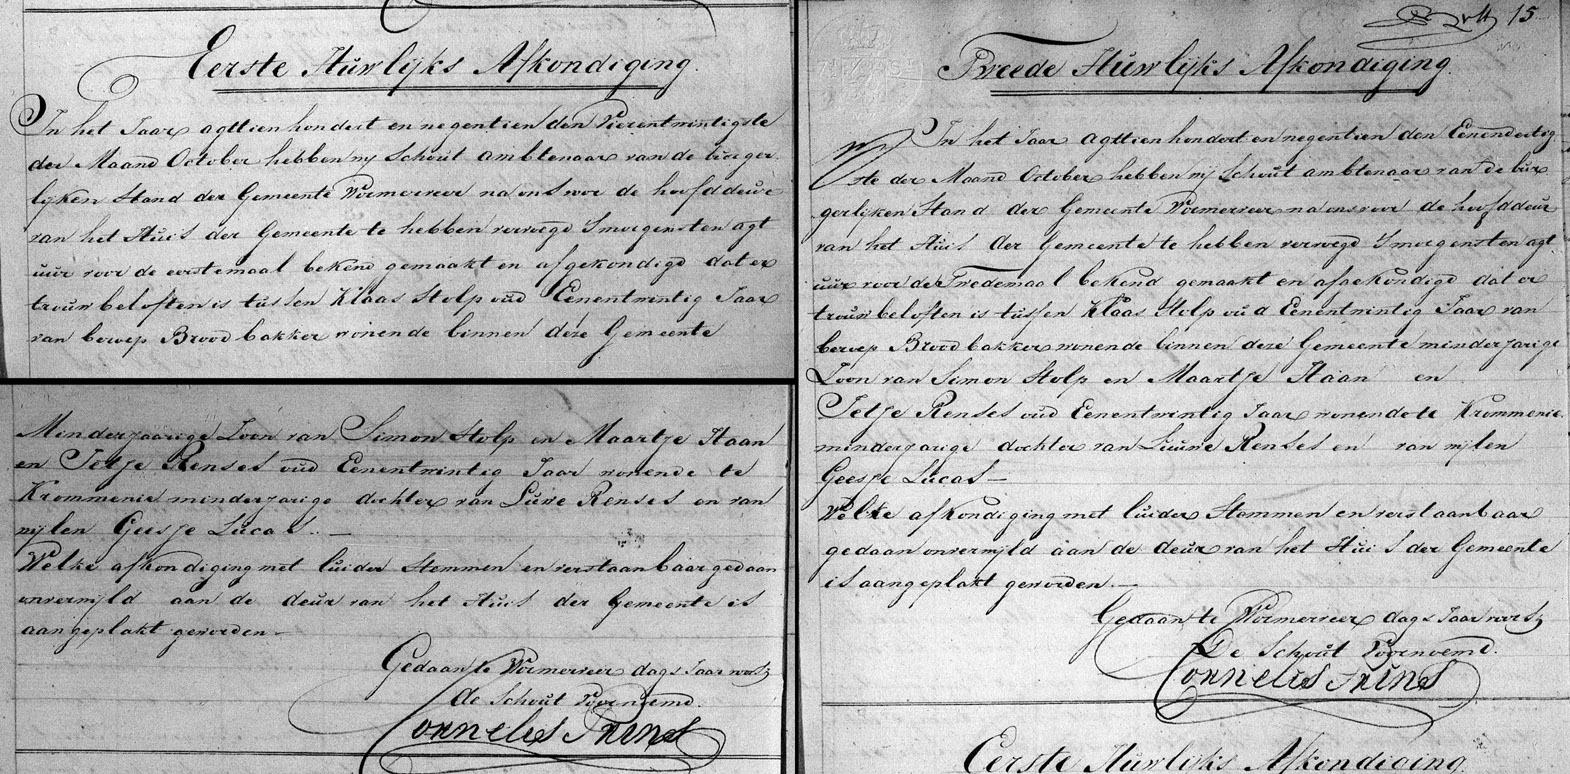 Eerste Huwlijks Afkondiging.
In het Jaar agttienhondert en negentien den Vierentwintigste
der Maand October hebben wij Schout ambtenaar van de burger
lyken Stand der Gemeente Wormerveer na ons voor de hoofddeur
van het Huis der Gemeente te hebben vervoegd Smorgens ten agt
uur voor de eerstemaal bekend gemaakt en afgekondigd dat er
trouwbeloften is tussen Klaas Stolp oud Eenentwintig Jaar
van beroep Broodbakker wonende binnen deze Gemeente
Minderjaarige Zoon van Simon Stolp en Maartje Haan
en Jetje Renses oud Eenentwintig Jaar wonende te
Krommenie minderjarige dochter van Luwe Renses en van
wijlen Geesje Lucas. —
Welke afkondiging met luider Stemmen en verstaanbaar gedaan
onvermyld aan de deur van het Huis der Gemeente is
aangeplakt geworden —
Gedaan te Wormerveer dag & Jaar voorsz
de Schout Voornoemd.
Cornelis Prins
15
Tweede Huwlijks Afkondiging.
In het Jaar agttienhondert en negentien den Eenendertig
ste der Maand October hebben wij Schout ambtenaar van de bur
gerlijken Stand der Gemeente Wormerveer na ons voor de hoofddeur
van het Huis der Gemeente te hebben vervoegd Smorgens ten agt
uur voor de Tweedemaal bekend gemaakt en afgekondigd dat er
trouwbeloften is tussen Klaas Stolp oud Eenentwintig Jaar van
beroep Broodbakker wonende binnen deze Gemeente minderjarige
Zoon van Simon Stolp en Maartje Haan en
Jetje Renses oud Eenentwintig Jaar wonende te Krommenie
minderjarige dochter van Luuwe Renses en van wijlen
Geesje Lucas —
Welke afkondiging met luider Stemmen en verstaanbaar
gedaan onvermyld aan de deur van het Huis der Gemeente
is aangeplakt geworden. —
Gedaan te Wormerveer dag & Jaar voorsz
De Schout Voornoemd.
Cornelis Prins
Eerste Huwlijks Afkondiging